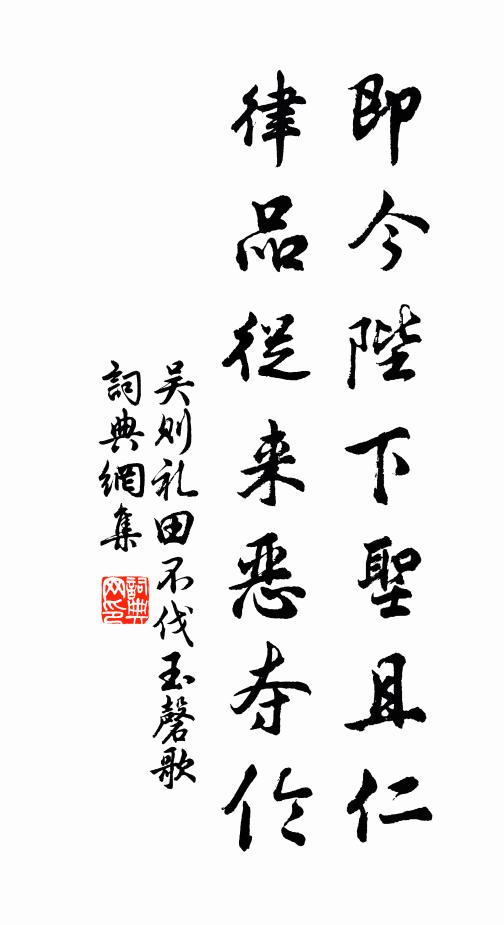 即今陛下聖且仁
律品從来惡夺伦
吴则礼田不伐玉磬歌
詞典網集
詞典网印